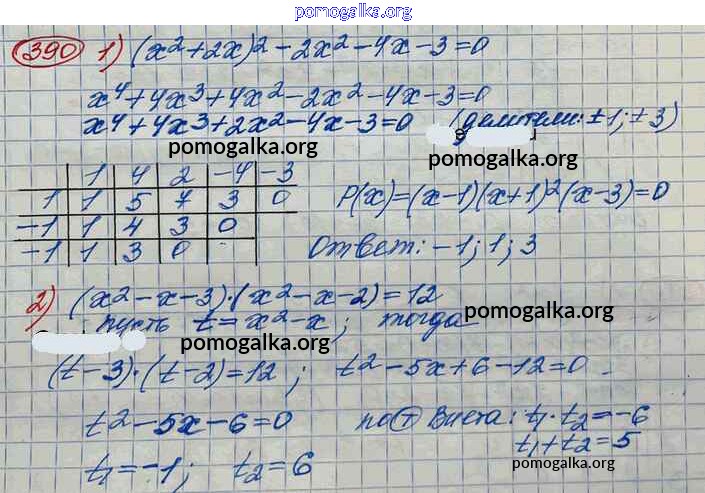 pomogalka.org
390 1) (x²+2x)²-2x²-4x-3=0
x⁴+4x³+4x²-2x²-4x-3=0
x⁴+4x³+2x²-4x-3=0 (делители: ±1; ±3)
pomogalka.org pomogalka.org
1 4 2 -4 -3
1 1 5 7 3 0 P(x)=(x-1)(x+1)²(x-3)=0
-1 1 4 3 0
-1 1 3 0 Ответ: -1; 1; 3
2) (x²-x-3)·(x²-x-2)=12
pomogalka.org
пусть t=x²-x; тогда
pomogalka.org
(t-3)·(t-2)=12; t²-5x+6-12=0
t²-5x-6=0 по Т Виета: t₁·t₂=-6
t₁+t₂=5
t₁=-1; t₂=6
pomogalka.org